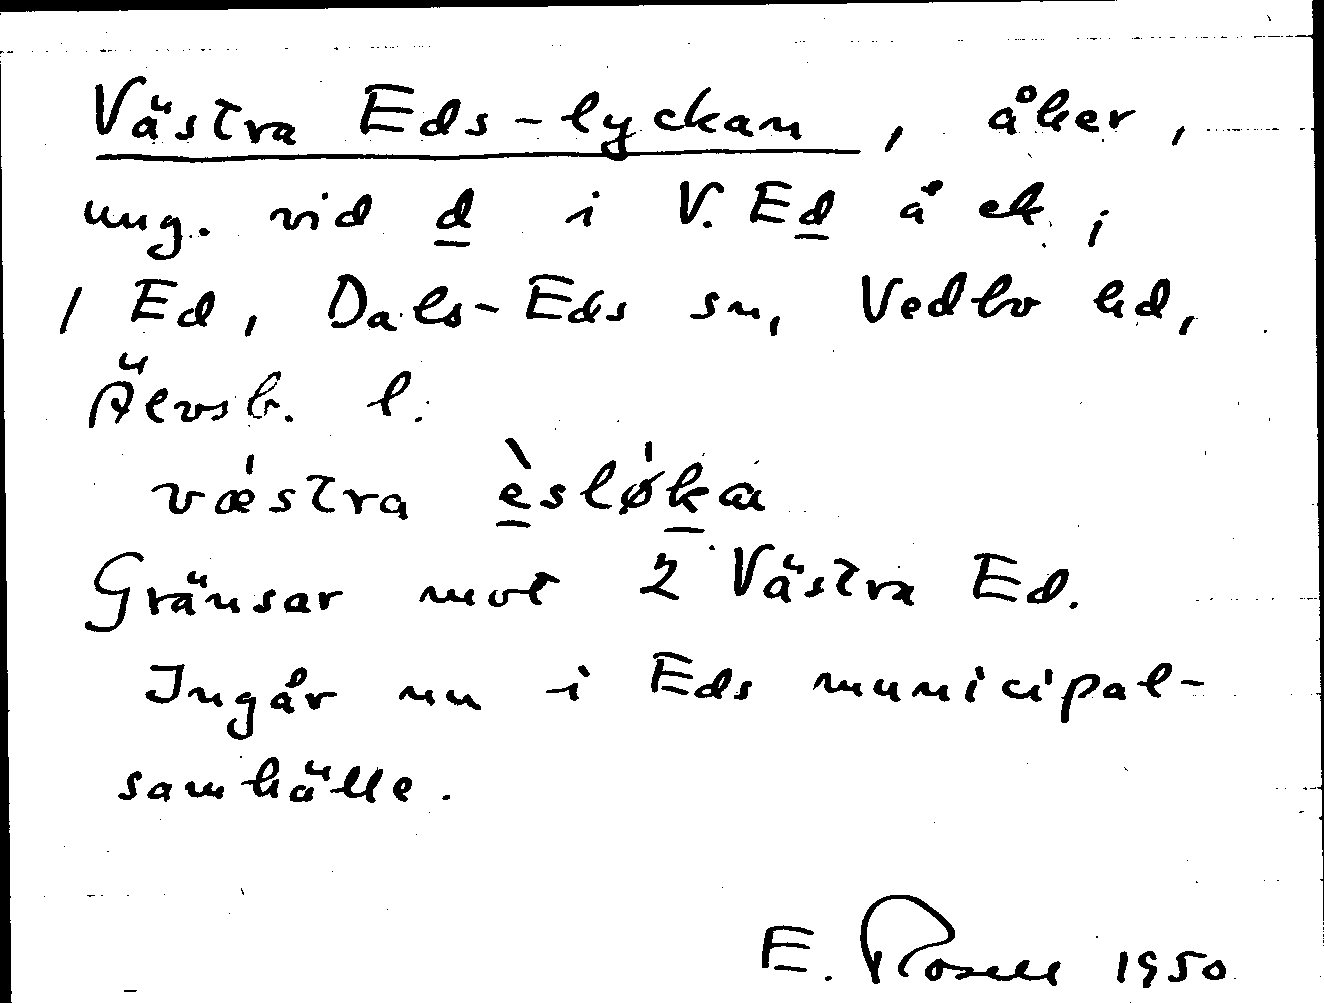 Västra Eds-lyckan, åker,
ung. vid d i V. Ed å ek i
1 Ed, Dals-Eds sn, Vedbo hd,
Älvsb. l.
vǽstra èslǿka
Gränsar mot 2 Västra Ed.
Ingår nu i Eds municipal-
samhälle.
E. Rosell 1950